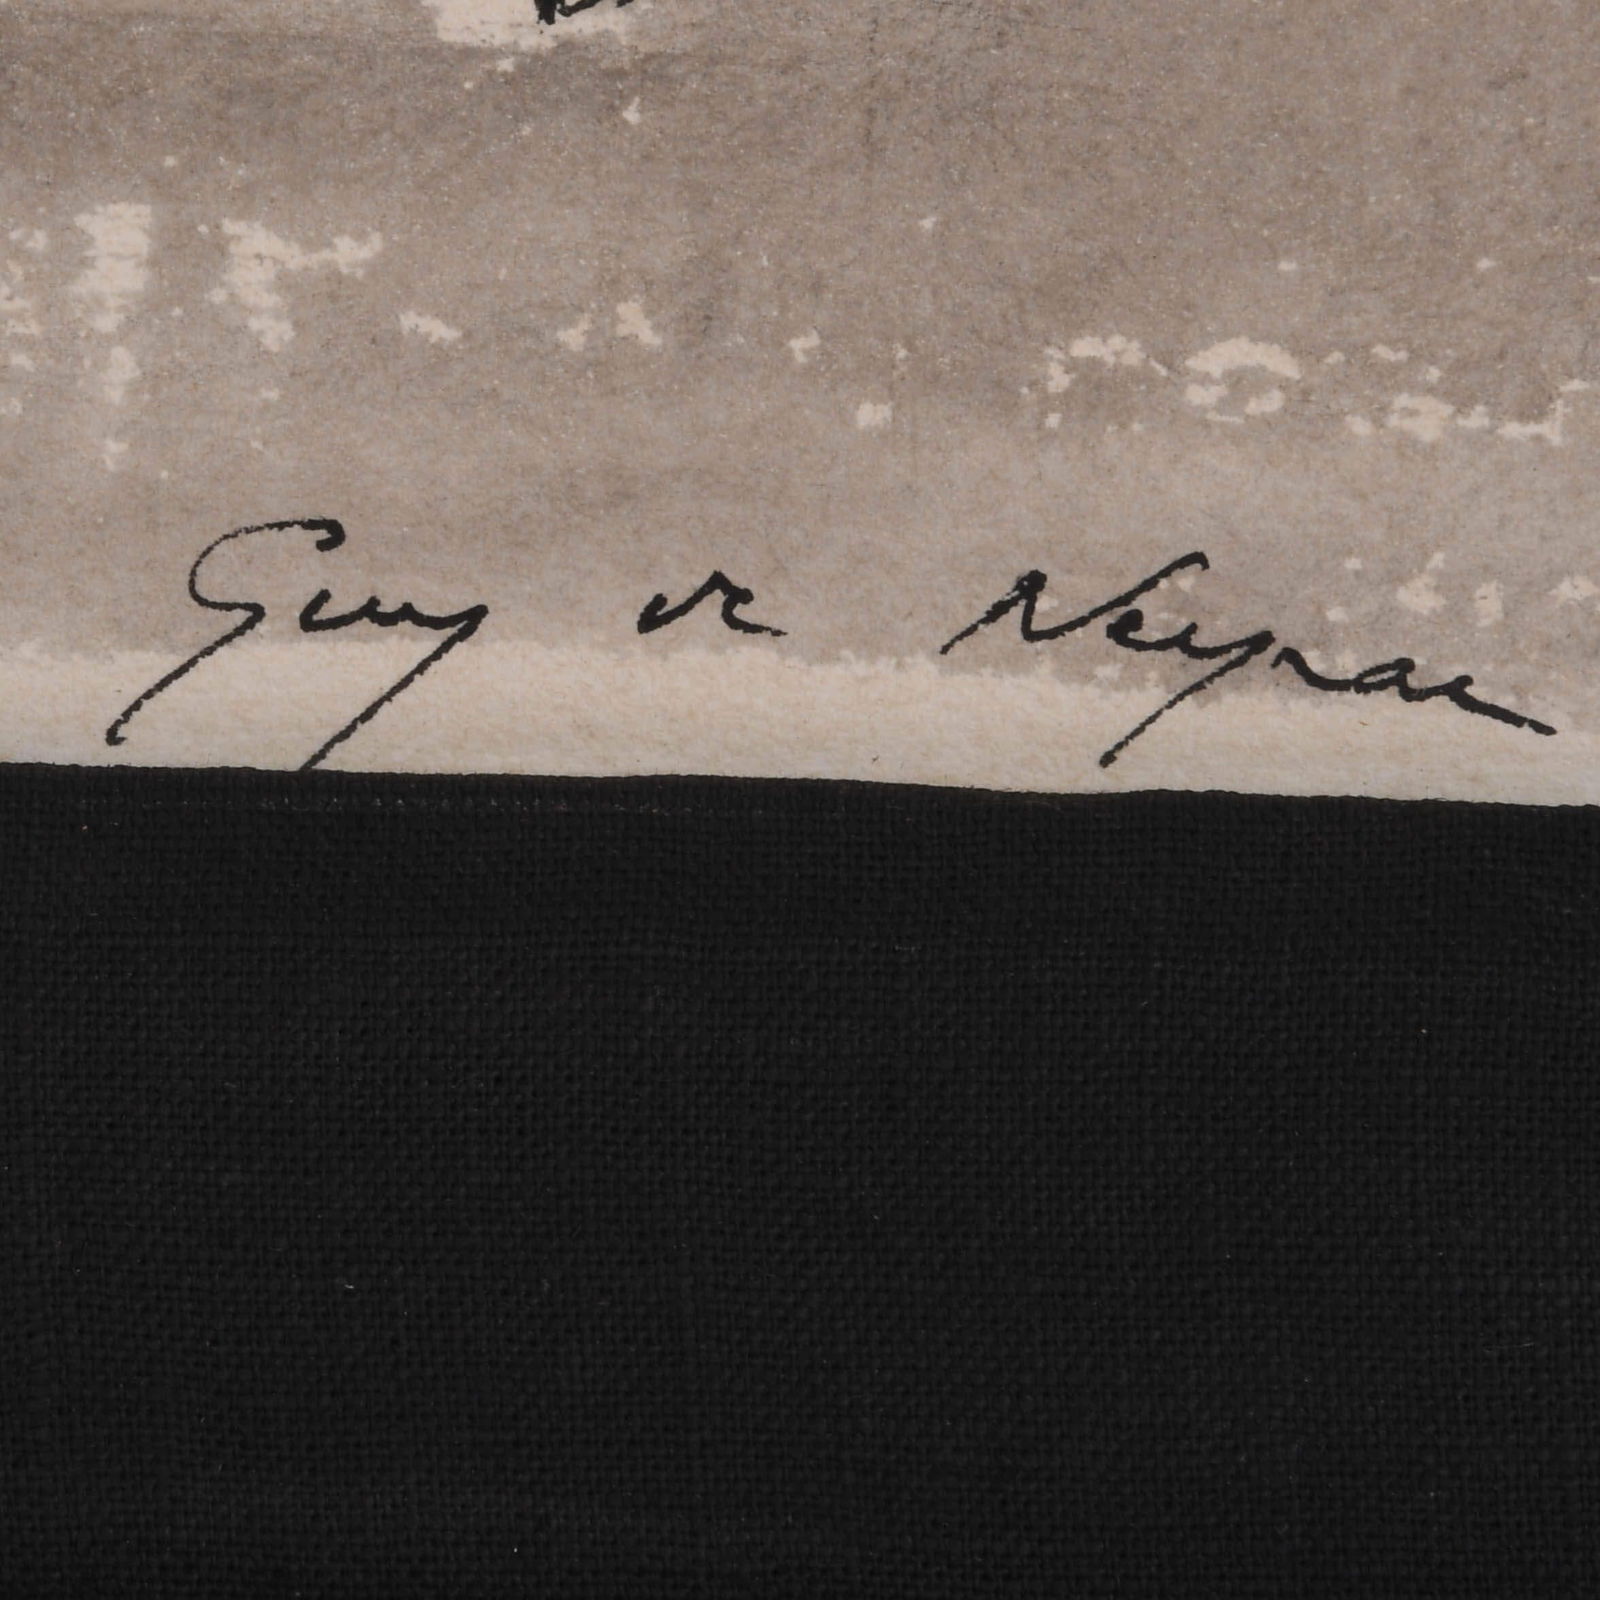 Guy de Neyrac